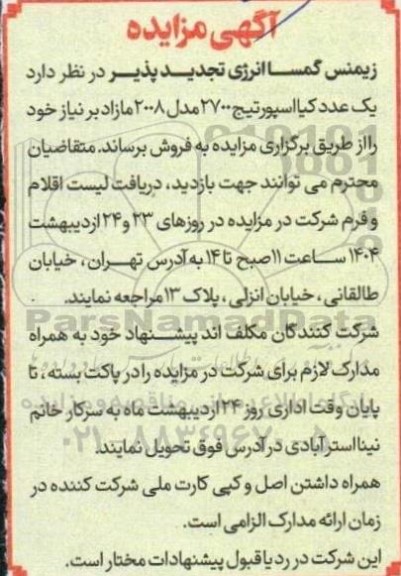 آگهی مزایده
زیمنس گمسا انرژی تجدید پذیر در نظر دارد
یک عدد کیا اسپورتیج ۲۷۰۰ مدل ۲۰۰۸ مازاد بر نیاز خود
را از طریق برگزاری مزایده به فروش برساند. متقاضیان
محترم می توانند جهت بازدید، دریافت لیست اقلام
و فرم شرکت در مزایده در روزهای ۲۳ و ۲۴ اردیبهشت
۱۴۰۴ ساعت ۱۱ صبح تا ۱۴ به آدرس تهران، خیابان
طالقانی، خیابان انزلی، پلاک ۱۳ مراجعه نمایند.
ParsNamadData
شرکت کنندگان مکلف اند پیشنهاد خود به همراه
مدارک لازم برای شرکت در مزایده را در پاکت بسته، تا
پایان وقت اداری روز ۲۴ اردیبهشت ماه به سرکار خانم
نینا استرآبادی در آدرس فوق تحویل نمایند.
۰۲۱-۸۸۳۴۹۶۷۰-۵
همراه داشتن اصل و کپی کارت ملی شرکت کننده در
زمان ارائه مدارک الزامی است.
این شرکت در رد یا قبول پیشنهادات مختار است.